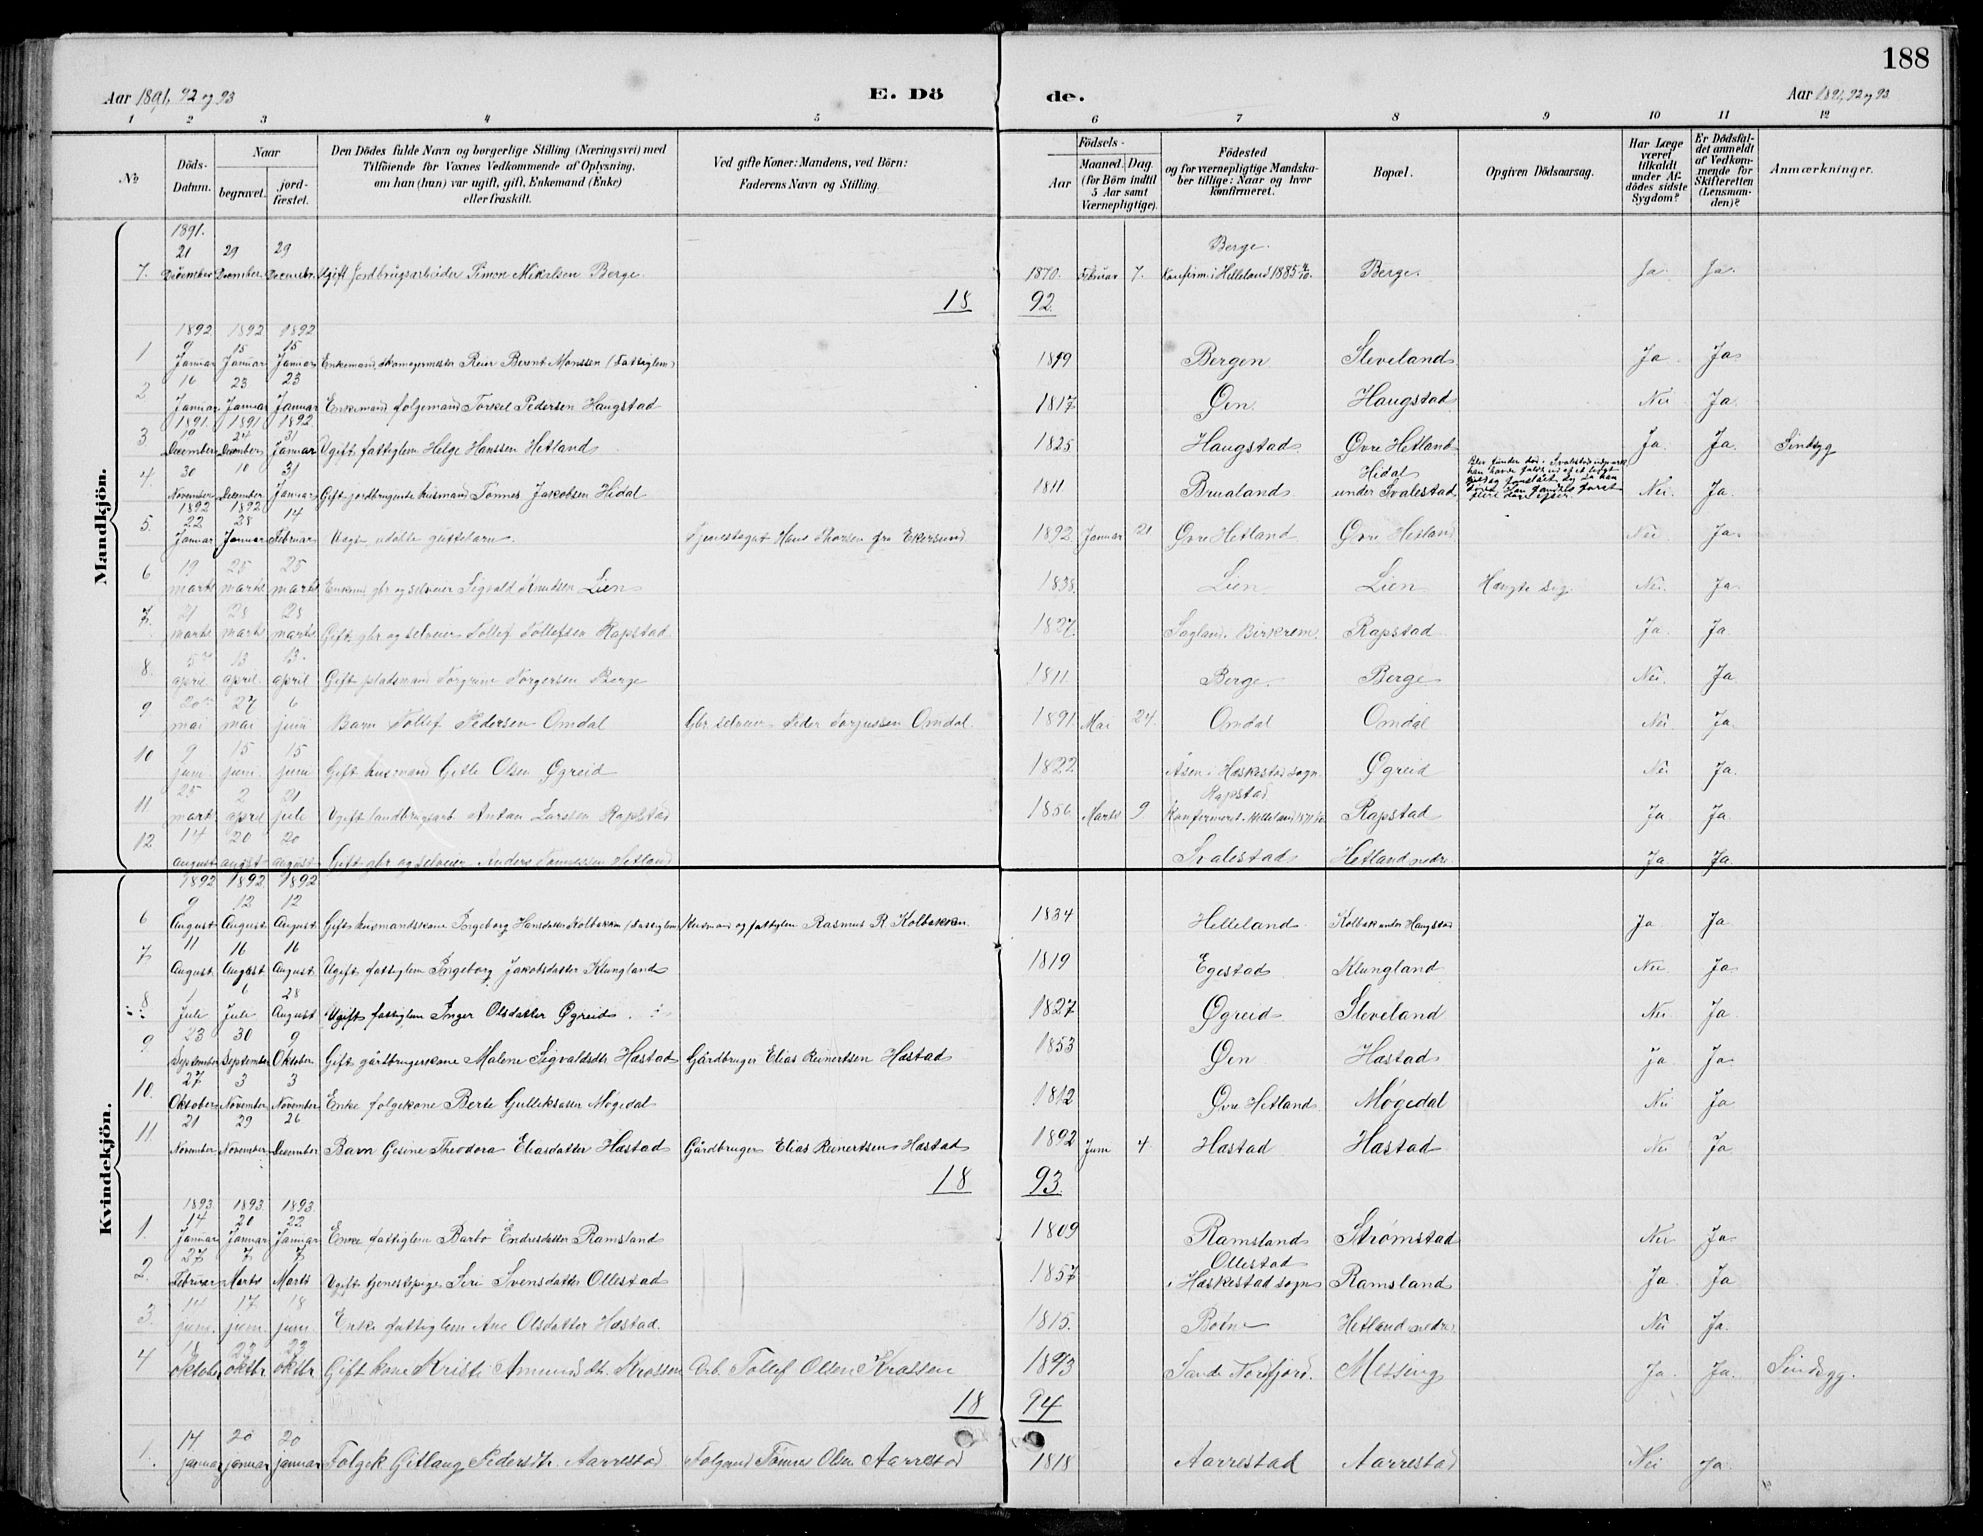 188
Aar 1891, 92 og 93
E. Dö
de.
Aar 1891, 92 og 93.
1 2 3 4 5 6 7 8 9 10 11 12
No
Döds-Datum.
Naar
begravet.
jord-fæstet.
Den Dödes fulde Navn og borgerlige Stilling (Næringsvei) med
Tilföiende for Voxnes Vedkommende af Oplysning,
om han (hun) var ugift, gift, Enkemand (Enke)
eller fraskilt.
Ved gifte Koner: Mandens, ved Börn:
Faderens Navn og Stilling.
Födsels-
Aar
Maaned. Dag.
(for Börn indtil
5 Aar samt
Værnepligtige).
Födested
og for værnepligtige Mandska-
ber tillige: Naar og hvor
konfirmeret.
Bopæl.
Opgiven Dödsaarsag.
Har Læge
været
tilkaldt
under Af-
dödes sidste
Sygdom?
Er Dödsfal-
det anmeldt
af Vedkom-
mende for
Skifteretten
(Lensman-
den)?
Anmærkninger.
Mandkjön.
1891.
21 29 29 Berge.
7. December December December Ugift Jordbrugsarbeider Simon Mikalsen Berge. 1870. Februar 7. Konfirm. i Helleland 1885 Berge. Ja. Ja.
18 92.
1892 1892 1892
9 15 15
1 Januar Januar Januar Enkemand, Reier Berent Monssen (Fattiglem) 1819 Bergen Sleveland Ja. Ja
16 23 23
2 Januar Januar Januar Enkemand folgemand Torkel Pedersen Haugstad 1817 Øen Haugstad Nei Ja.
1891. 1891 1892
24 31
3 December December Januar Ugift fattiglem Helge Hanssen Hetland 1825 Haugstad Øvre Hetland Ja. Ja Sindsyg
30 10 31
4. November December Januar Gift jordbrugende husmand Tønnes Jakobsen Hidal 1811. Brualand Hidal under Svalestad Nei. Ja.
1892 1892
22 28 14
5. Januar Januar Februar udøbte guttebarn. Hans Thorsen fra Ekersund 1892 Januar 21 Øvre Hetland Øvre Hetland Nei. Ja.
19 25 25
6 marts marts marts Enkmd gbr og selveier Sigvald Knudsen Lien 1838. Lien Lien Hængte sig Nei. Ja
21 28 28
7. marts marts marts Gift gbr og selveier Tollef Tollefsen Rapstad 1827. Sagland i Birkrem Rapstad Ja. Ja.
5 13 13
8. april april april Gift pladsmand Torgrim Torgersen Berge 1811 Berge. Berge Nei. Ja
20 27 6
9 mai mai juni Barn Tollef Pedersen Omdal Gbr. selveier Peder Torjussen Omdal. 1891. Mai 24. Omdal Omdal Nei Ja.
9 15 15
10 juni. juni. juni Gift husmand Gitle Olsen Øgreid 1822 Åsen i Heskestad sogn Øgreid Nei Ja.
25 2 21 Rapstad
11 marts april jule Ugift landbrugsarb Anton Larssen Rapstad 1856. Marts 9 Konfirmeret i Helleland Rapstad Ja Ja.
14 20 20
12 august august august Gift gbr og selveier Anders Tønnessen Hetland Svalestad Hetland nedre. Ja. Ja.
Kvindekjön.
1892 1892 1892
9 12 12
6 August August August Gift husmandskone Ingeborg Hansdatter Kolbækken (Fattiglem) Husmand og fattiglem Rasmus R. Kolbækken. 1834 Helleland Kolbæk under Haugstad Ja Ja
11 16 16
7. August August August Ugift fattiglem Ingeborg Jakobsdatter Klungland 1819 Egestad Klungland Nei Ja
1 6 28
8 Jule Jule August Ugift fattiglem Inger Olsdatter Øgreid 1827 Øgreid Sleveland Nei Ja.
23 30 9
9 September September Oktober Gift gårdbrugerkone Malene Sigvaldsdtr Hæstad Gårdbruger Elias Reinertsen Hæstad 1853 Øen Hæstad ja Ja.
27 3 3
10. Oktober November November Enke folgekone Berte Gulliksdatter Møgedal 1812 Øvre Hetland Møgedal Nei Ja
21 29 26
11. November November December Barn Gesine Theodora Eliasdatter Hæstad Gårdbruger Elias Reinertsen Hæstad 1892 Juni 4. Hæstad Hæstad Nei Ja
18 93.
1893. 1893. 1893.
14 20 22
1. Januar Januar Januar Enke fattiglem Barbo Endresdatter Ramsland 1809 Ramsland Strømstad Nei Ja
27 7 7 Ollestad
2. Februar Marts Marts Ugift tjenestepige Siri Svensdatter Ollestad 1857 i Heskestad sogn Ramsland Ja. Ja
14 17 18
3. juni. juni. juni. Enke fattiglem Ane Olsdatter Hæstad. 1815. Botne Hetland nedre Nei Ja.
23 23
4 oktober oktbr oktbr Gift kone Kristi Amundsdtr. Krossen Arb. Tollef Olsen Krossen 1893 Sande Nordfjord. Messing Ja. Ja. Sindsyg.
18 94
14 20 20
1. januar januar januar Folgek Gitlaug Pedersdtr. Aarrestad Folgmd Tønnes Olsen Aarrestad 1818 Aarrestad Aarrestad Nei Ja.